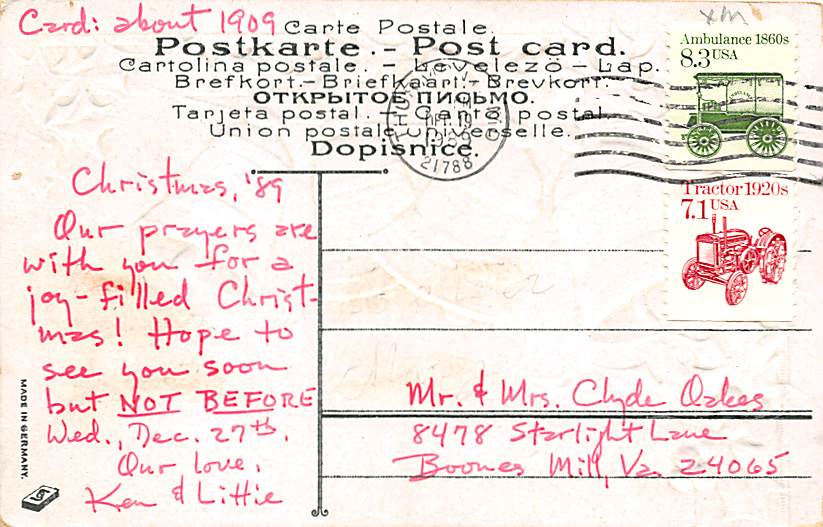 Card: about 1909
xm
Carte Postale.
Postkarte. - Post card.
Cartolina postale. - Levelezö - Lap.
Brefkort. - Briefkaart. - Brevkort.
ОТКРЫТОЕ ПИСЬМО.
Tarjeta postal. - Carta postal.
Union postale universelle.
Dopisnice.
19
1989
21788
Ambulance 1860s
8.3 USA
Tractor 1920s
7.1 USA
Christmas, '89
Our prayers are
with you for a
joy-filled Christ-
mas! Hope to
see you soon
but NOT BEFORE
Wed., Dec. 27th.
Our love,
Ken & Littie
Mr. & Mrs. Clyde Oakes
8478 Starlight Lane
Boones Mill, Va. 24065
MADE IN GERMANY.